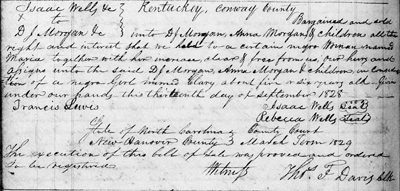 Isaac Wells &c Kentuckey, Conway County
to Bargained and sold
D J Morgan &c unto D J Morgan, Anna Morgan & children all the
right and interest that we have to a certain negro Woman named
Maria together with her increase, clear & free from us, our heirs and
assigns unto the said D J Morgan, Anna Morgan & children, in consideration
of a negro Girl named Clary about five years old. Given
under our hands this thirteenth day of September 1828
Francis Lewis Isaac Wells Seal
Rebecca Wells Seal
State of North Carolina County Court
New Hanover County March Term 1829
The execution of this bill of Sale was proved and ordered
to be registered.
Witness Thos. F. Davis Clk